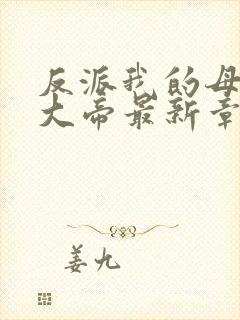 反派我的母
大帝最新章
姜九